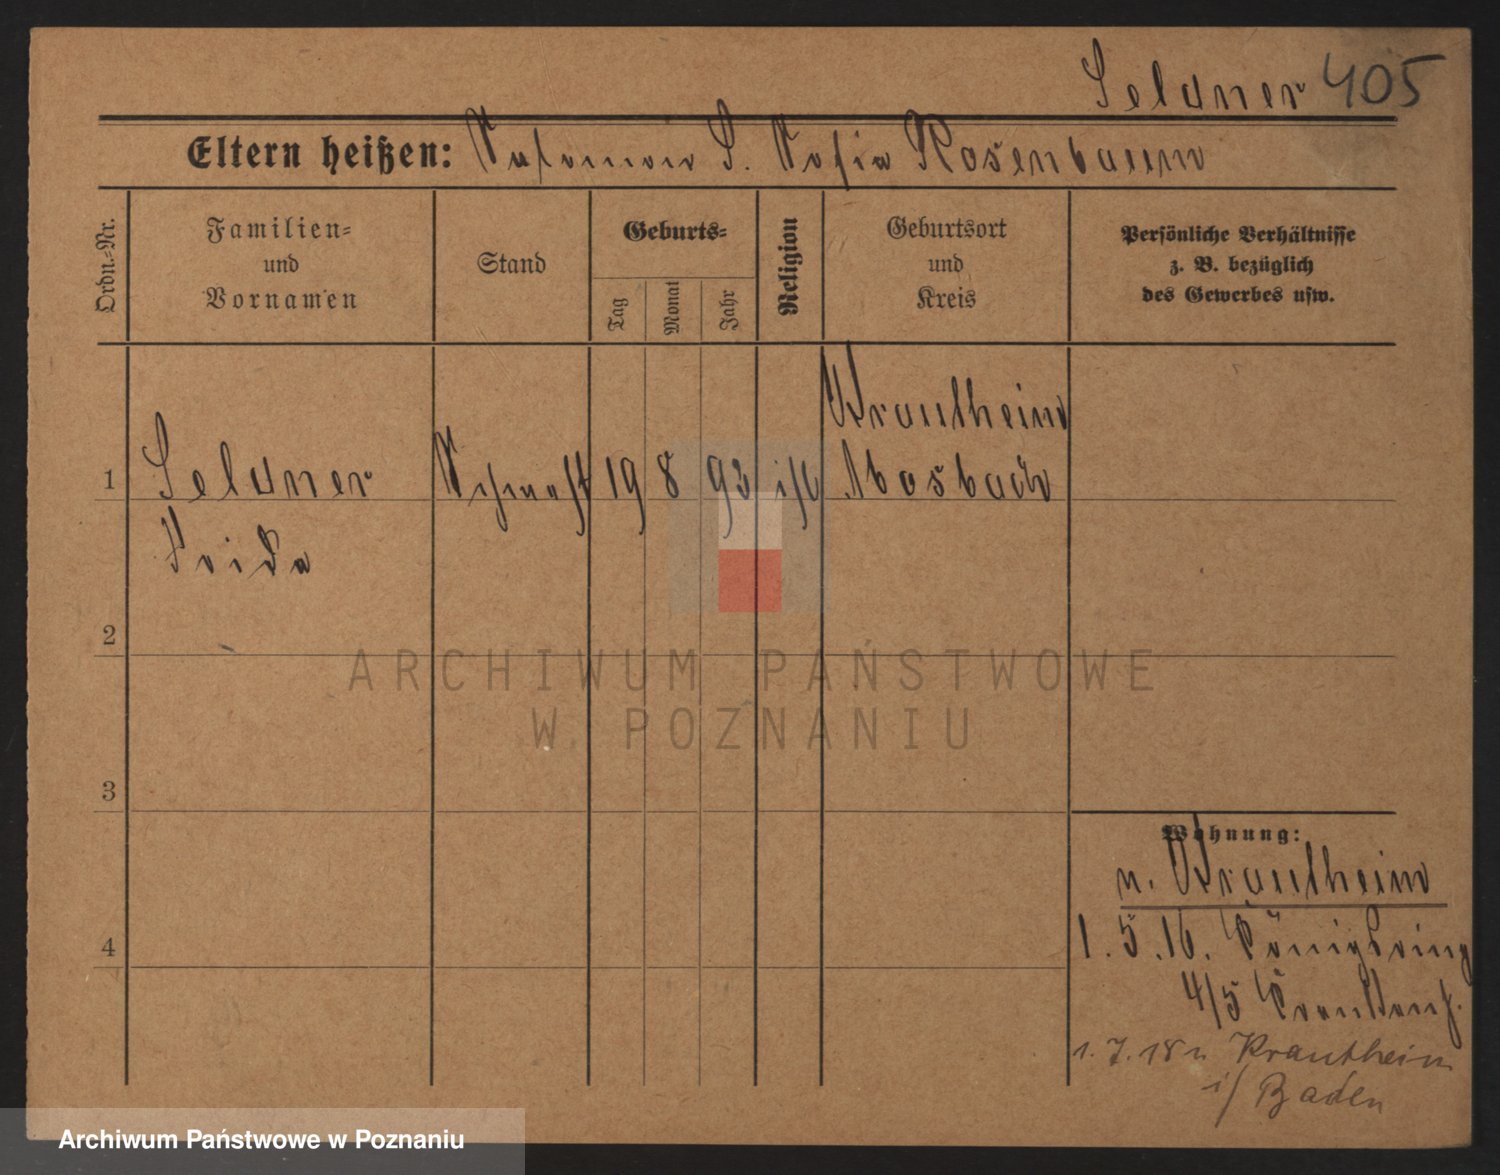 Seldner 405
Eltern heißen: Salomon S. Sofia Rosenbaum
Ordn.-Nr.
Familien-
und
Vornamen
Stand
Geburts-
Tag
Monat
Jahr
Religion
Geburtsort
und
Kreis
Persönliche Verhältnisse
z. B. bezüglich
des Gewerbes usw.
Krautheim
1 Seldner 19 8 93 isr Mosbach
Frida
2
3
4
Wohnung:
n. Krautheim
1.5.16. Königsring
4/5 Krankenh.
1.7.18 n Krautheim
i/ Baden
ARCHIWUM PAŃSTWOWE
W POZNANIU
Archiwum Państwowe w Poznaniu